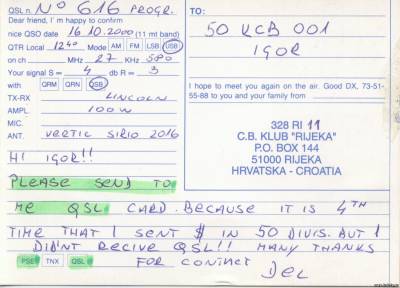 QSL n. No 616 PROGR.
Dear friend, I'm happy to confirm
nice QSO date 16.10.2000 (11 mt band)
QTR Local 1240 Mode AM FM LSB USB
on ch MHz 27 KHz 580
Your signal S = 4 db R = 3
with QRM QRN QSB
TX-RX LINCOLN
AMPL. 100W
MIC.
ANT. VERTIC SIRIO 2016
TO:
50 KCB 001
IGOR
I hope to meet you again on the air. Good DX, 73-51-
55-88 to you and your family from
328 RI 11
C.B. KLUB "RIJEKA"
P.O. BOX 144
51000 RIJEKA
HRVATSKA - CROATIA
HI IGOR!!
PLEASE SEND TO
ME QSL CARD. BECAUSE IT IS 4TH
TIME THAT I SENT $ IN 50 DIVIS. BUT I
DIDN'T RECIVE QSL!! MANY THANKS
PSE TNX QSL FOR CONTACT
DEL